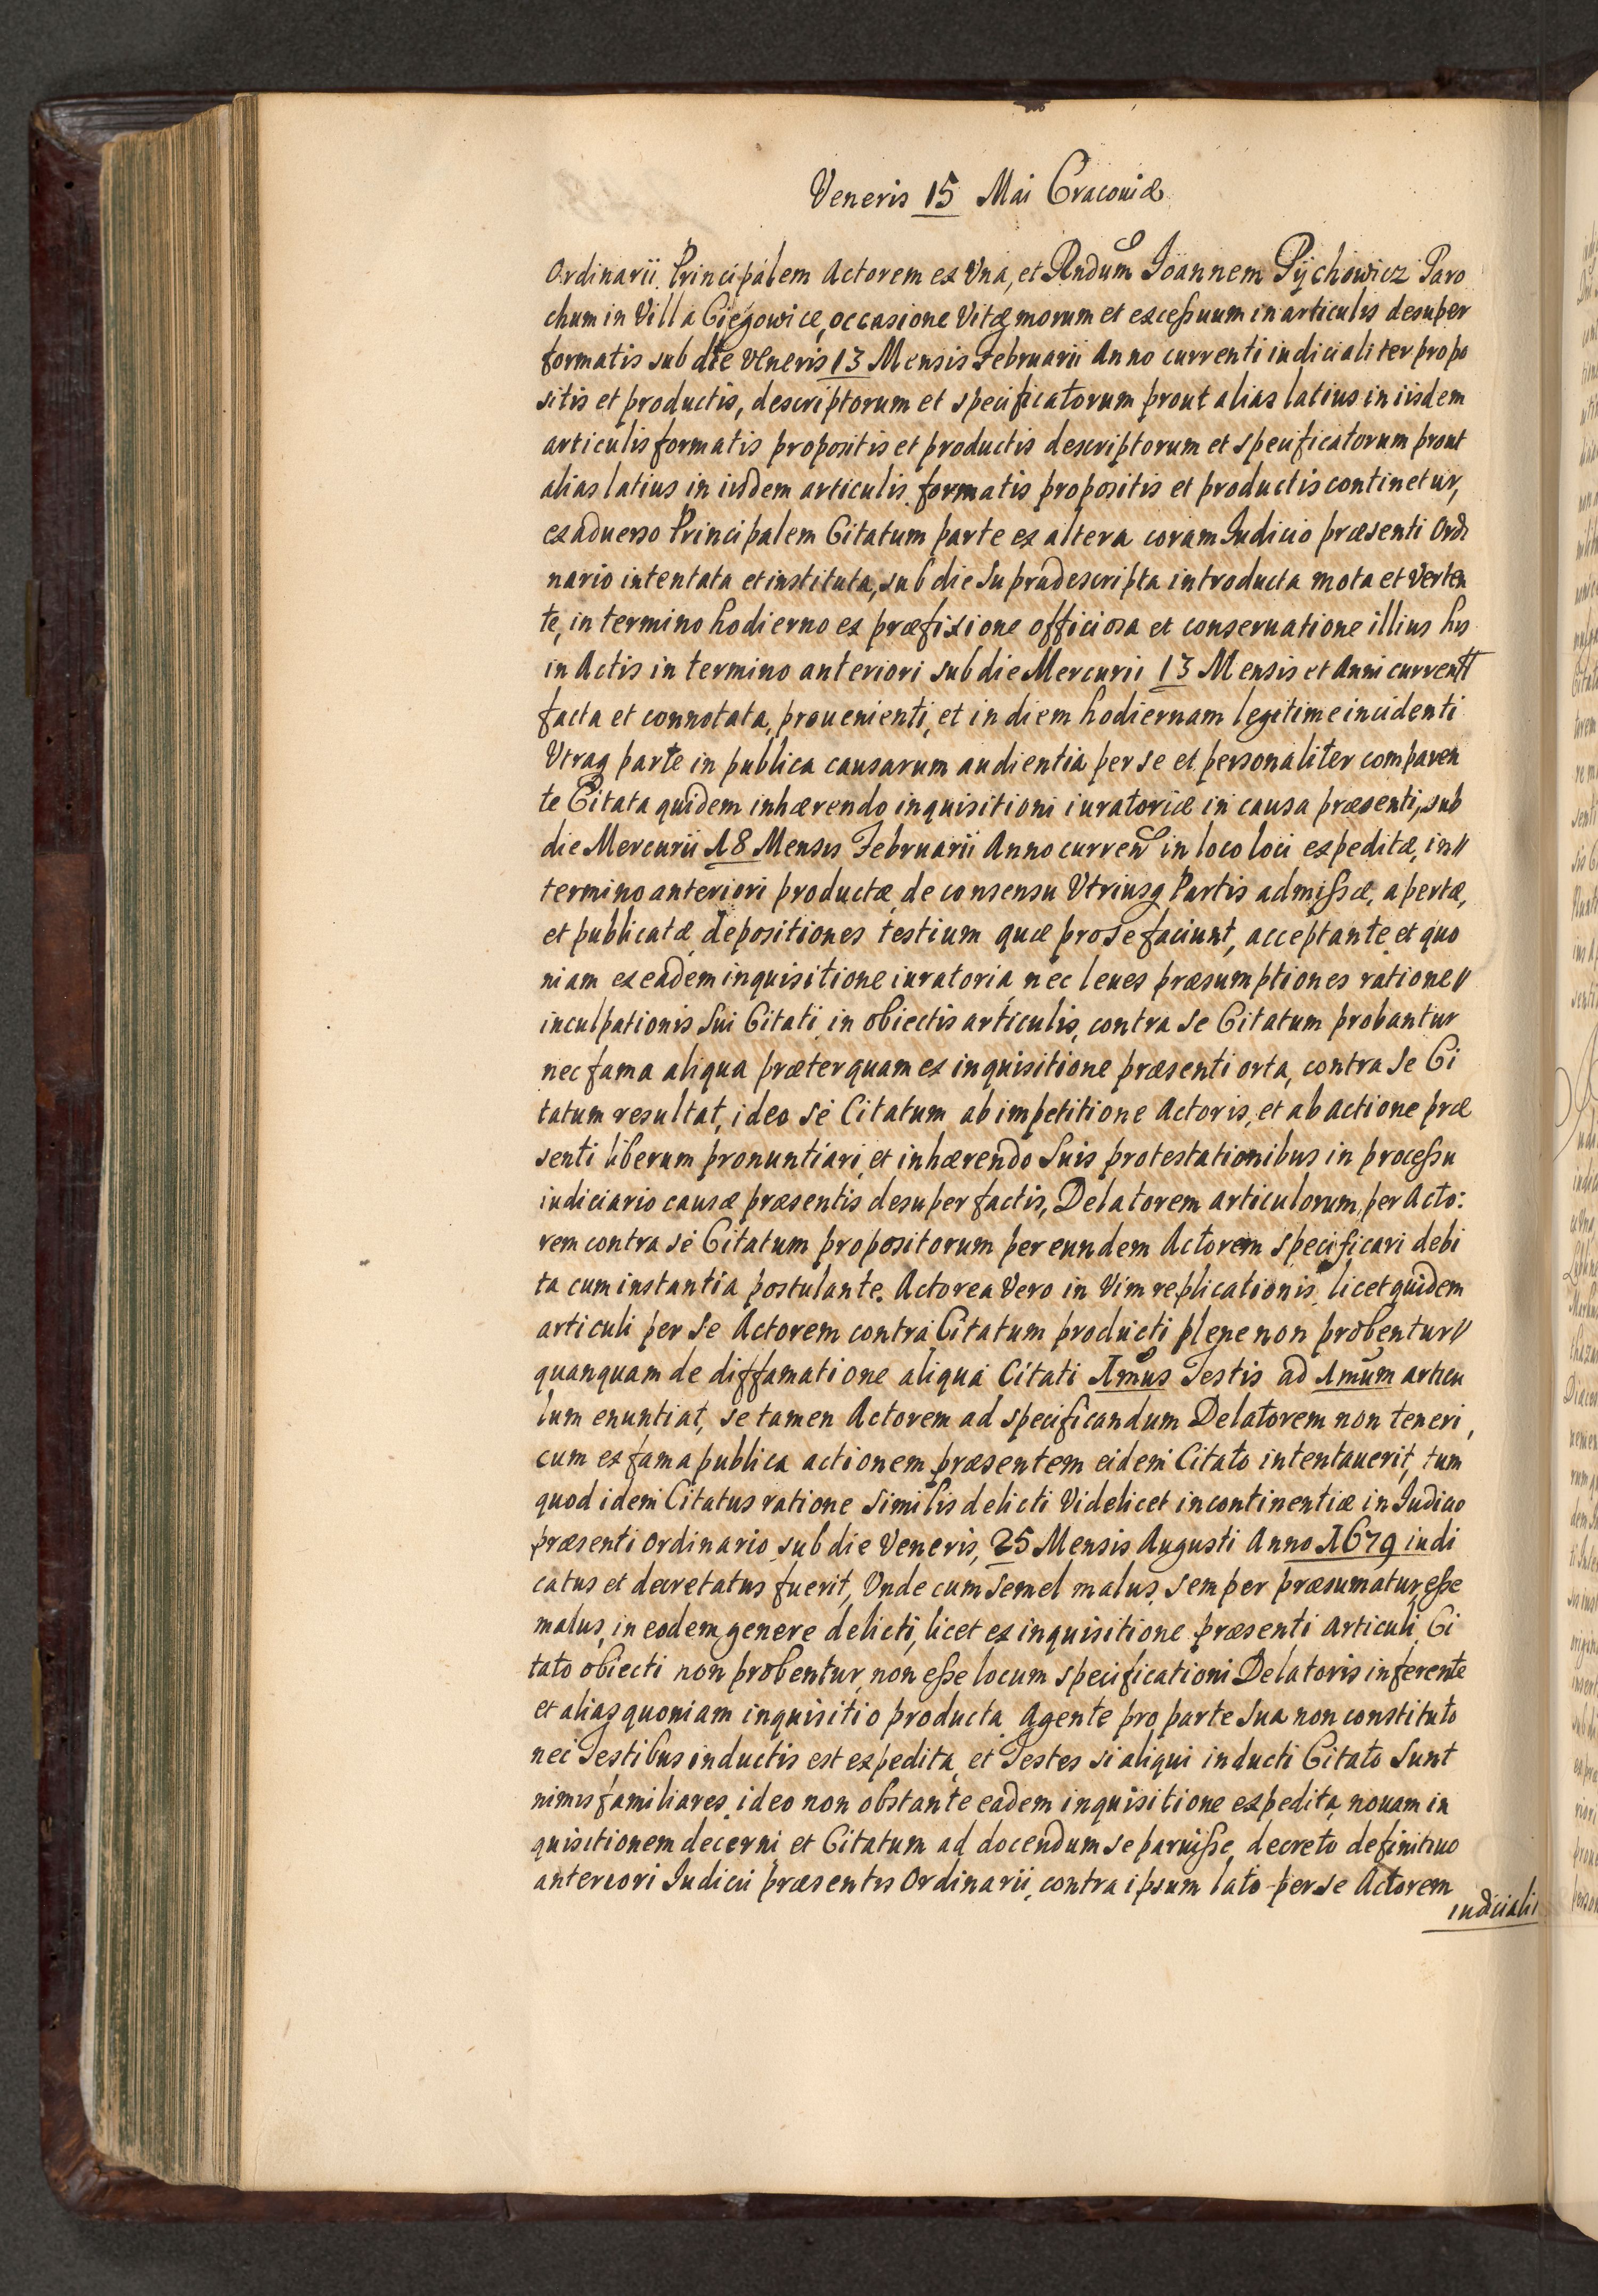 Veneris 15 Mai Cracouiæ
Ordinarii Principalem Actorem ex Vna, et Rndum Ioannem Pÿchowicz Paro
chum in Villa Gięgowice, occasione Vitæ morum et excessuum in articulis desuper
formatis sub die Veneris 13 Mensis Februarii Anno currenti iudicialiter propo
sitis et productis, descriptorum et specificatorum prout alias latius in iisdem
articulis formatis propositis et productis descriptorum et specificatorum prout
alias latius in iisdem articulis formatis propositis et productis continetur,
ex aduerso Principalem Citatum parte ex altera coram Iudicio præsenti Ordi
nario intentata et instituta, sub die Supradescripta introducta mota et Verten
te, in termino hodierno ex præfixione officiosa et conseruatione illius his
in Actis in termino anteriori sub die Mercurii 13 Mensis et Anni currentt
facta et connotata, prouenienti, et in diem hodiernam legitime incidenti
Vtraq parte in publica causarum audientia per se et personaliter comparen
te Citata quidem inhærendo inquisitioni iuratoriæ in causa præsenti, sub
die Mercurii 18 Mensis Februarii Anno curren in loco loci expeditæ, in //
termino anteriori productæ, de consensu Vtriusq Partis admissæ, apertæ,
et publicatæ, depositiones testium quæ pro se faciunt, acceptante et quo
niam ex eadem inquisitione iuratoria nec leues præsumptiones ratione //
inculpationis Sui Citati in obiectis articulis, contra Se Citatum probantur
nec fama aliqua præterquam ex inquisitione præsenti orta, contra Se Ci
tatum resultat, ideo se Citatum ab impetitione Actoris, et ab actione præ
senti liberum pronuntiari, et inhærendo Suis protestationibus in processu
iudiciario causæ præsentis desuper factis, Delatorem articulorum, per Acto:
rem contra se Citatum propositorum per eundem Actorem specificari debi
ta cum instantia postulante. Actorea Vero in Vim replicationis, licet quidem
articuli per Se Actorem contra Citatum producti plene non probentur //
quanquam de diffamatione aliqua Citati 1mus Testis ad 1mum articu
lum enuntiat, se tamen Actorem ad specificandum Delatorem non teneri,
cum ex fama publica actionem præsentem eidem Citato intentauerit, tum
quod idem Citatus ratione Similis delicti Videlicet incontinentiæ in Iudicio
præsenti Ordinario sub die Veneris, 25 Mensis Augusti Anno 1679 iudi
catus et decretatus fuerit, Vnde cum Semel malus, semper præsumatur esse
malus, in eodem genere delicti, licet ex inquisitione præsenti Articuli Ci
tato obiecti non probentur, non esse locum specificationi Delatoris inferente
et alias quoniam inquisitio producta Agente pro parte Sua non constituto
nec Testibus inductis est expedita, et Testes si aliqui inducti Citato Sunt
nimis familiares, ideo non obstante eadem inquisitione expedita, nouam in
quisitionem decerni et Citatum ad docendum se paruisse, decreto definitiuo
anteriori Iudicii præsentis Ordinarii, contra ipsum lato per Se Actorem
iudicialit